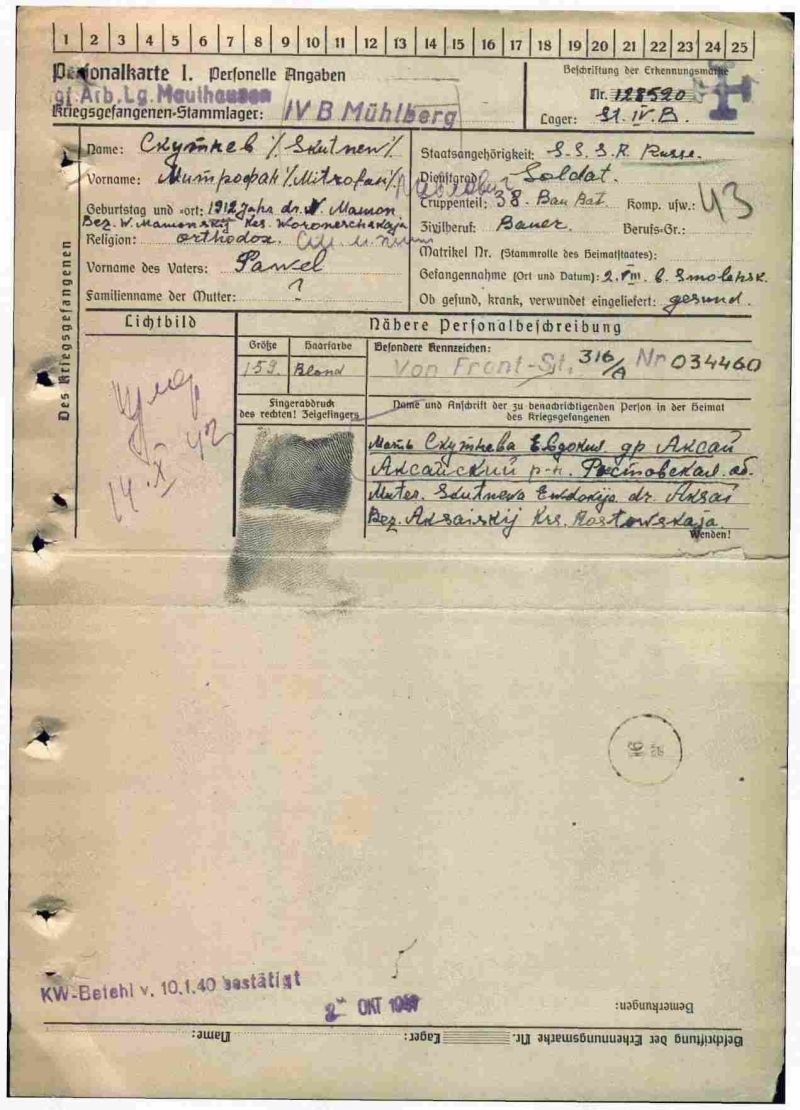 1 2 3 4 5 6 7 8 9 10 11 12 13 14 15 16 17 18 19 20 21 22 23 24 25
Personalkarte I. Personelle Angaben
gf. Arb. Lg. Mauthausen
Kriegsgefangenen-Stammlager: IV B Mühlberg
Beschriftung der Erkennungsmarke
Nr. 128520
Lager: St. IV. B.
Des Kriegsgefangenen
Name: Скутнев /Skutnew/
Vorname: Митрофан /Mitrofan/ Павлович
Geburtstag und -ort: 1912 Jahr dr. W. Mamon
Bez. W. Mamonskij Krs. Woroneschskaja
Religion: orthodox.
Vorname des Vaters: Pawel
Familienname der Mutter: ?
Staatsangehörigkeit: S.S.S.R. Russe.
Dienstgrad: Soldat.
Truppenteil: 38. Bau Bat. Komp. usw.: 43
Zivilberuf: Bauer. Berufs-Gr.:
Matrikel Nr. (Stammrolle des Heimatstaates):
Gefangennahme (Ort und Datum): 2.VIII. b. Smolensk.
Ob gesund, krank, verwundet eingeliefert: gesund.
Lichtbild
Nähere Personalbeschreibung
Größe Haarfarbe
159. Blond
Besondere Kennzeichen:
Von Front-St. 316/A Nr 034460
Fingerabdruck
des rechten! Zeigefingers
Name und Anschrift der zu benachrichtigenden Person in der Heimat
des Kriegsgefangenen
умер
14.X 42
Мать Скутнева Евдокия др Аксай
Аксайский р-н. Ростовская об.
Muter. Skutnewa Ewdokija dr. Aksai
Bez. Aksaiskij Krs. Rostowskaja.
Wenden!
KW-Befehl v. 10.1.40 bestätigt
OKT
Bemerkungen:
Name: Lager: Beschriftung der Erkennungsmarke Nr.